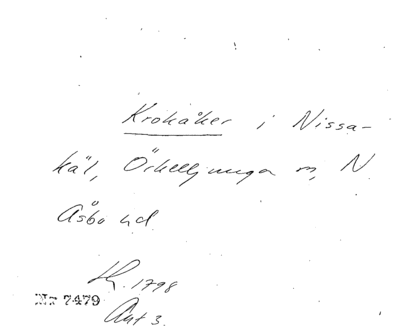 Krokåker i Nissa-
käl, Örkelljunga sn, N
Åsbo hd
Lk. 1798
Akt 3.
Nr 7479